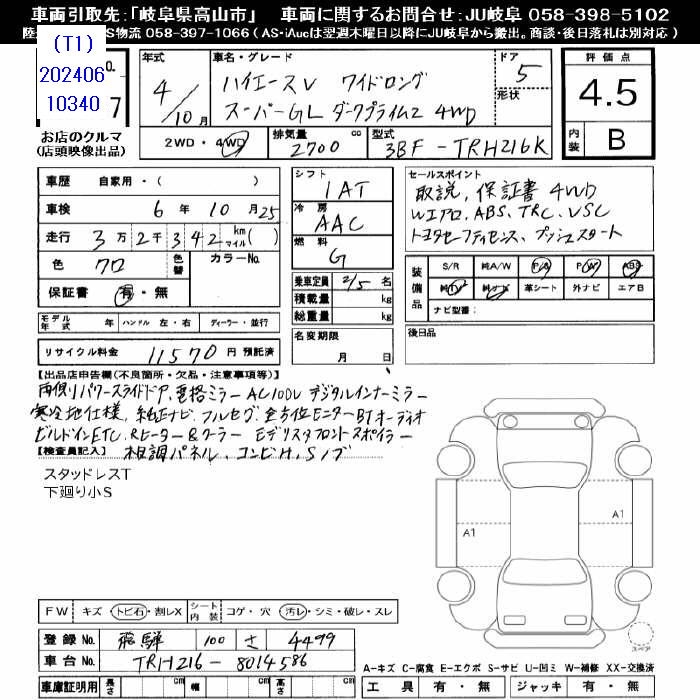 車両引取先:「岐阜県高山市」 車両に関するお問合せ:JU岐阜 058-398-5102
S物流 058-397-1066 ( AS・iAucは翌週木曜日以降にJU岐阜から搬出。商談・後日落札は別対応 )
(T1)
202406
10340
7
お店のクルマ
(店頭映像出品)
年式
4/10月
車名・グレード
ハイエースV ワイドロング
スーパーGL ダークプライム2 4WD
ドア
5
形状
評価点
4.5
内装
B
2WD・4WD
排気量
2700 cc
型式
3BF-TRH216K
車歴 自家用・( )
車検 6年10月25
走行 3万2千342 km マイル( )
色 クロ
色替
カラーNo.
保証書 有・無
モデル年式 年 ハンドル 左・右 ディーラー・並行
リサイクル料金 11570 円 預託済
シフト
1AT
冷房
AAC
燃料
G
乗車定員 2/5 名
積載量 kg
総重量 kg
名変期限
月 日
セールスポイント
取説、保証書 4WD
Wエアロ、ABS、TRC、VSC
トヨタセーフティセンス、プッシュスタート
装備品
S/R 純A/W P/S P/W ABS
純TV 純ナビ 革シート 外ナビ エアB
ナビ型番:
後日品
【出品店申告欄(不良箇所・欠品・注意事項等)】
両側パワースライドドア、電格ミラー AC100V デジタルインナーミラー
寒冷地仕様、純正ナビ、フルセグ、全方位モニター BTオーディオ
ビルドインETC、Rヒーター&クーラー モデリスタフロントスポイラー
【検査員記入】 木目調パネル、コンビH、Sノブ
スタッドレスT
下廻り小S
A1
A1
スペア
FW キズ・トビ石・割レX
シート内装 コゲ・穴 汚レ・シミ・破レ・スレ
登録No. 飛騨 100 さ 4499
車台No. TRH216-8014586
車庫証明用 長さ cm 幅 cm 高さ cm
A-キズ C-腐食 E-エクボ S-サビ U-凹ミ W-補修 XX-交換済
工具 有・無 ジャッキ 有・無